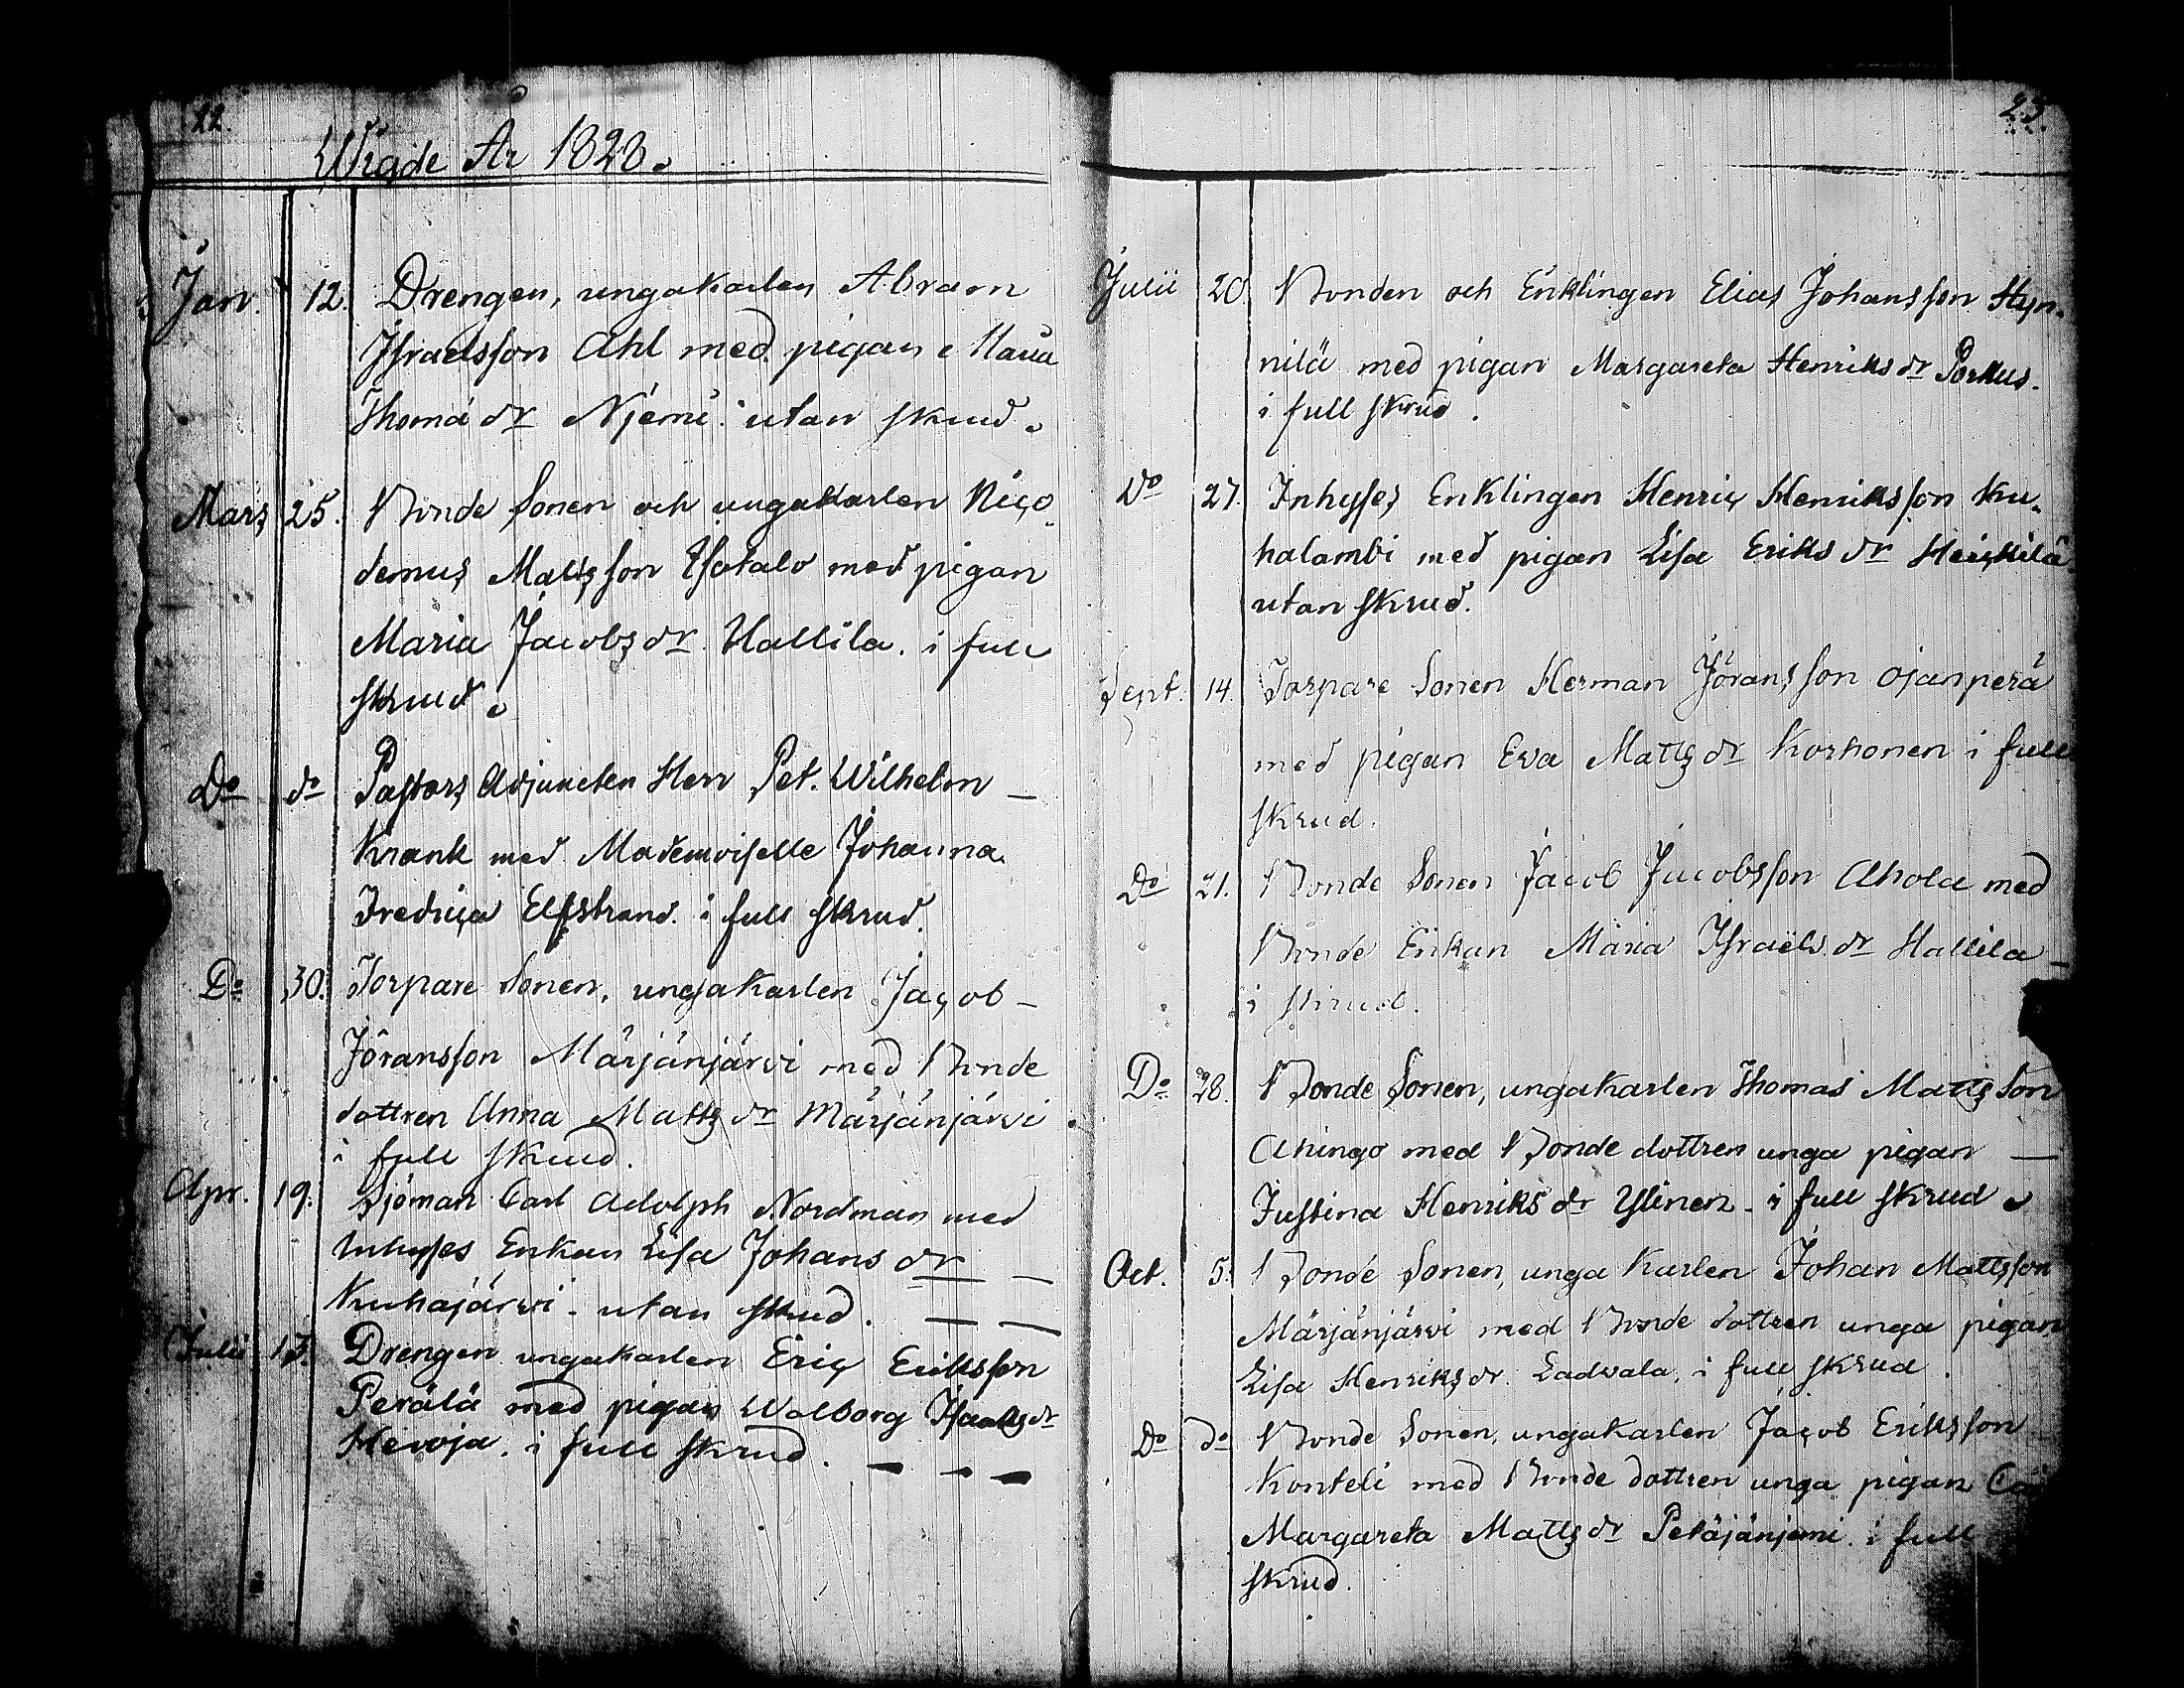 22.
Wigde År 1828.
Jan. 12. Drengen, ungakarlen Abram
Israelsson Ahl med pigan Maria
Thomä dr Njemi utan skrud.
Mars 25. Bonde Sonen och ungakarlen Nico-
demus Matts son Ylitalo med pigan
Maria Jacobs dr Hallila. i full
skrud.
Do do Pastors Adjuncten Herr Pet. Wilhelm –
Krank med Mademoiselle Johanna
Fredrica Elfstrand. i full skrud.
Do 30. Torpare Sonen, ungakarlen Jacob –
Jöransson Märjänjärvi med Bonde
dottren Anna Matts dr Märjänjärvi
i full skrud.
Apr. 19. Sjöman Carl Adolph Nordman med
Inhyses Enkan Lisa Johans dr –
Kuhajärvi. utan skrud. – –
Julii 13. Drengen ungakarlen Eric Eriksson
Perälä med pigan Walborg Isaacs dr
Hevoja. i full skrud. – – –
23.
Julii 20. Bonden och Enklingen Elias Johansson Hyn-
nilä med pigan Margareta Henriks dr Porkus.
i full skrud.
Do 27. Inhyses Enklingen Henric Henriksson Ku-
halambi med pigan Lisa Eriks dr Heickilä
utan skrud.
Sept. 14. Torpare Sonen Herman Jöransson Ojanperä
med pigan Eva Matts dr Korhonen i full
skrud.
Do 21. Bonde Sonen Jacob Jacobsson Ahola med
Bonde Enkan Maria Israëls dr Hallila –
i skrud.
Do 28. Bonde Sonen, ungakarlen Thomas Matts Son
Ahingo med Bonde dottren unga pigan –
Justina Henriks dr Ylinen. i full skrud.
Oct. 5. Bonde Sonen, unga karlen Johan Mattsson
Märjänjärvi med Bonde dottren unga pigan
Lisa Henriks dr Ladvala, i full skrud.
Do do Bonde Sonen, ungakarlen Jacob Eriksson
Konteli med Bonde dottren unga pigan
Margareta Matts dr Petäjänjemi. i full
skrud.